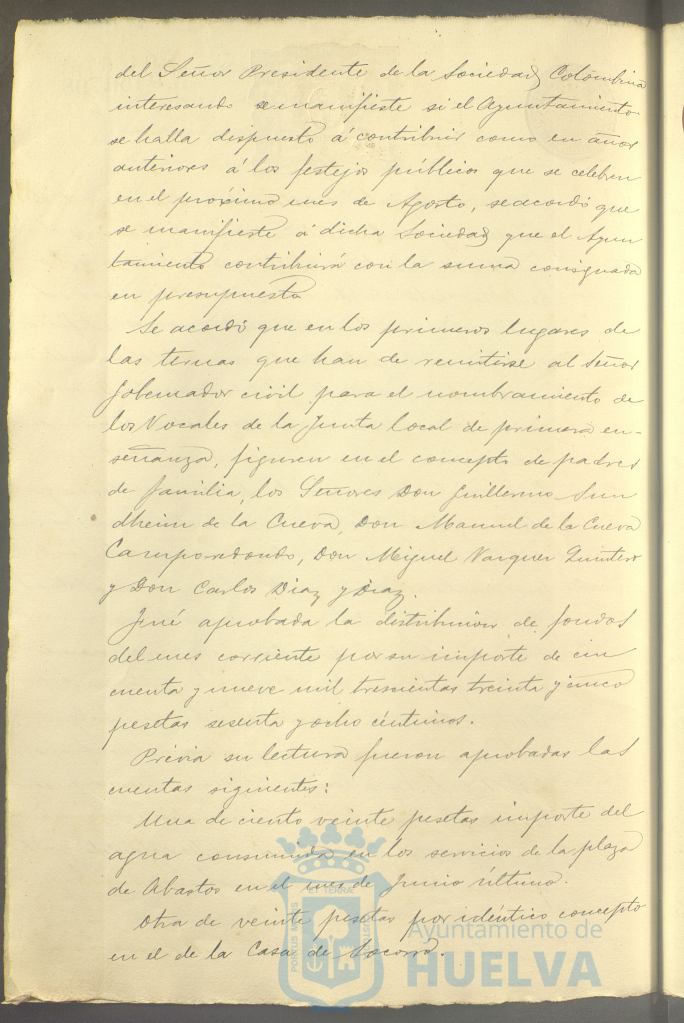 del Señor Presidente de la Sociedad Colombina
interesando se manifieste si el Ayuntamiento
se halla dispuesto á contribuir como en años
anteriores á los festejos públicos que se celebren
en el próximo mes de Agosto, se acordó que
se manifieste á dicha Sociedad que el Ayun
tamiento contribuirá con la suma consignada
en presupuesto
Se acordó que en los primeros lugares de
las ternas que han de remitirse al Señor
Gobernador civil para el nombramiento de
los Vocales de la Junta local de primera en-
señanza, figuren en el concepto de padres
de familia, los Señores Don Guillermo Sun
dheim de la Cueva, Don Manuel de la Cueva
Camporedondo, Don Miguel Vazquez Quintero
y Don Carlos Diaz y Diaz.
Fué aprobada la distribución de fondos
del mes corriente por su importe de cin
cuenta y nueve mil trescientas treinta y cinco
pesetas sesenta y ocho céntimos.
Prévia su lectura fueron aprobadas las
cuentas siguientes:
Una de ciento veinte pesetas importe del
agua consumida en los servicios de la plaza
de Abastos en el mes de Junio último.
Otra de veinte pesetas por idéntico concepto
en el de la Casa de Socorro.
Ayuntamiento de
HUELVA